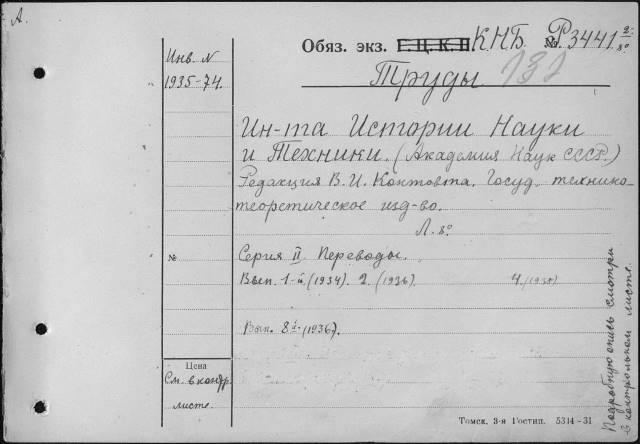 А.
Обяз. экз. Г.Ц.К.П КНБ № Р3441 2:
8º
Инв. N
1935-74.
Труды
132
Ин-та Истории Науки
и Техники. (Академия Наук СССР.)
Редакция В. И. Контовта. Госуд. технико-
теоретическое изд-во.
Л. 8º
№
Серия II Переводы.
Вып. 1-й (1934). 2. (1936). 4. (1935)
Вып. 8й (1936).
Цена
См. в контр.
листе.
Томск. 3-я Гостип. 5314-31
Подробную опись смотри
в контрольном листе.